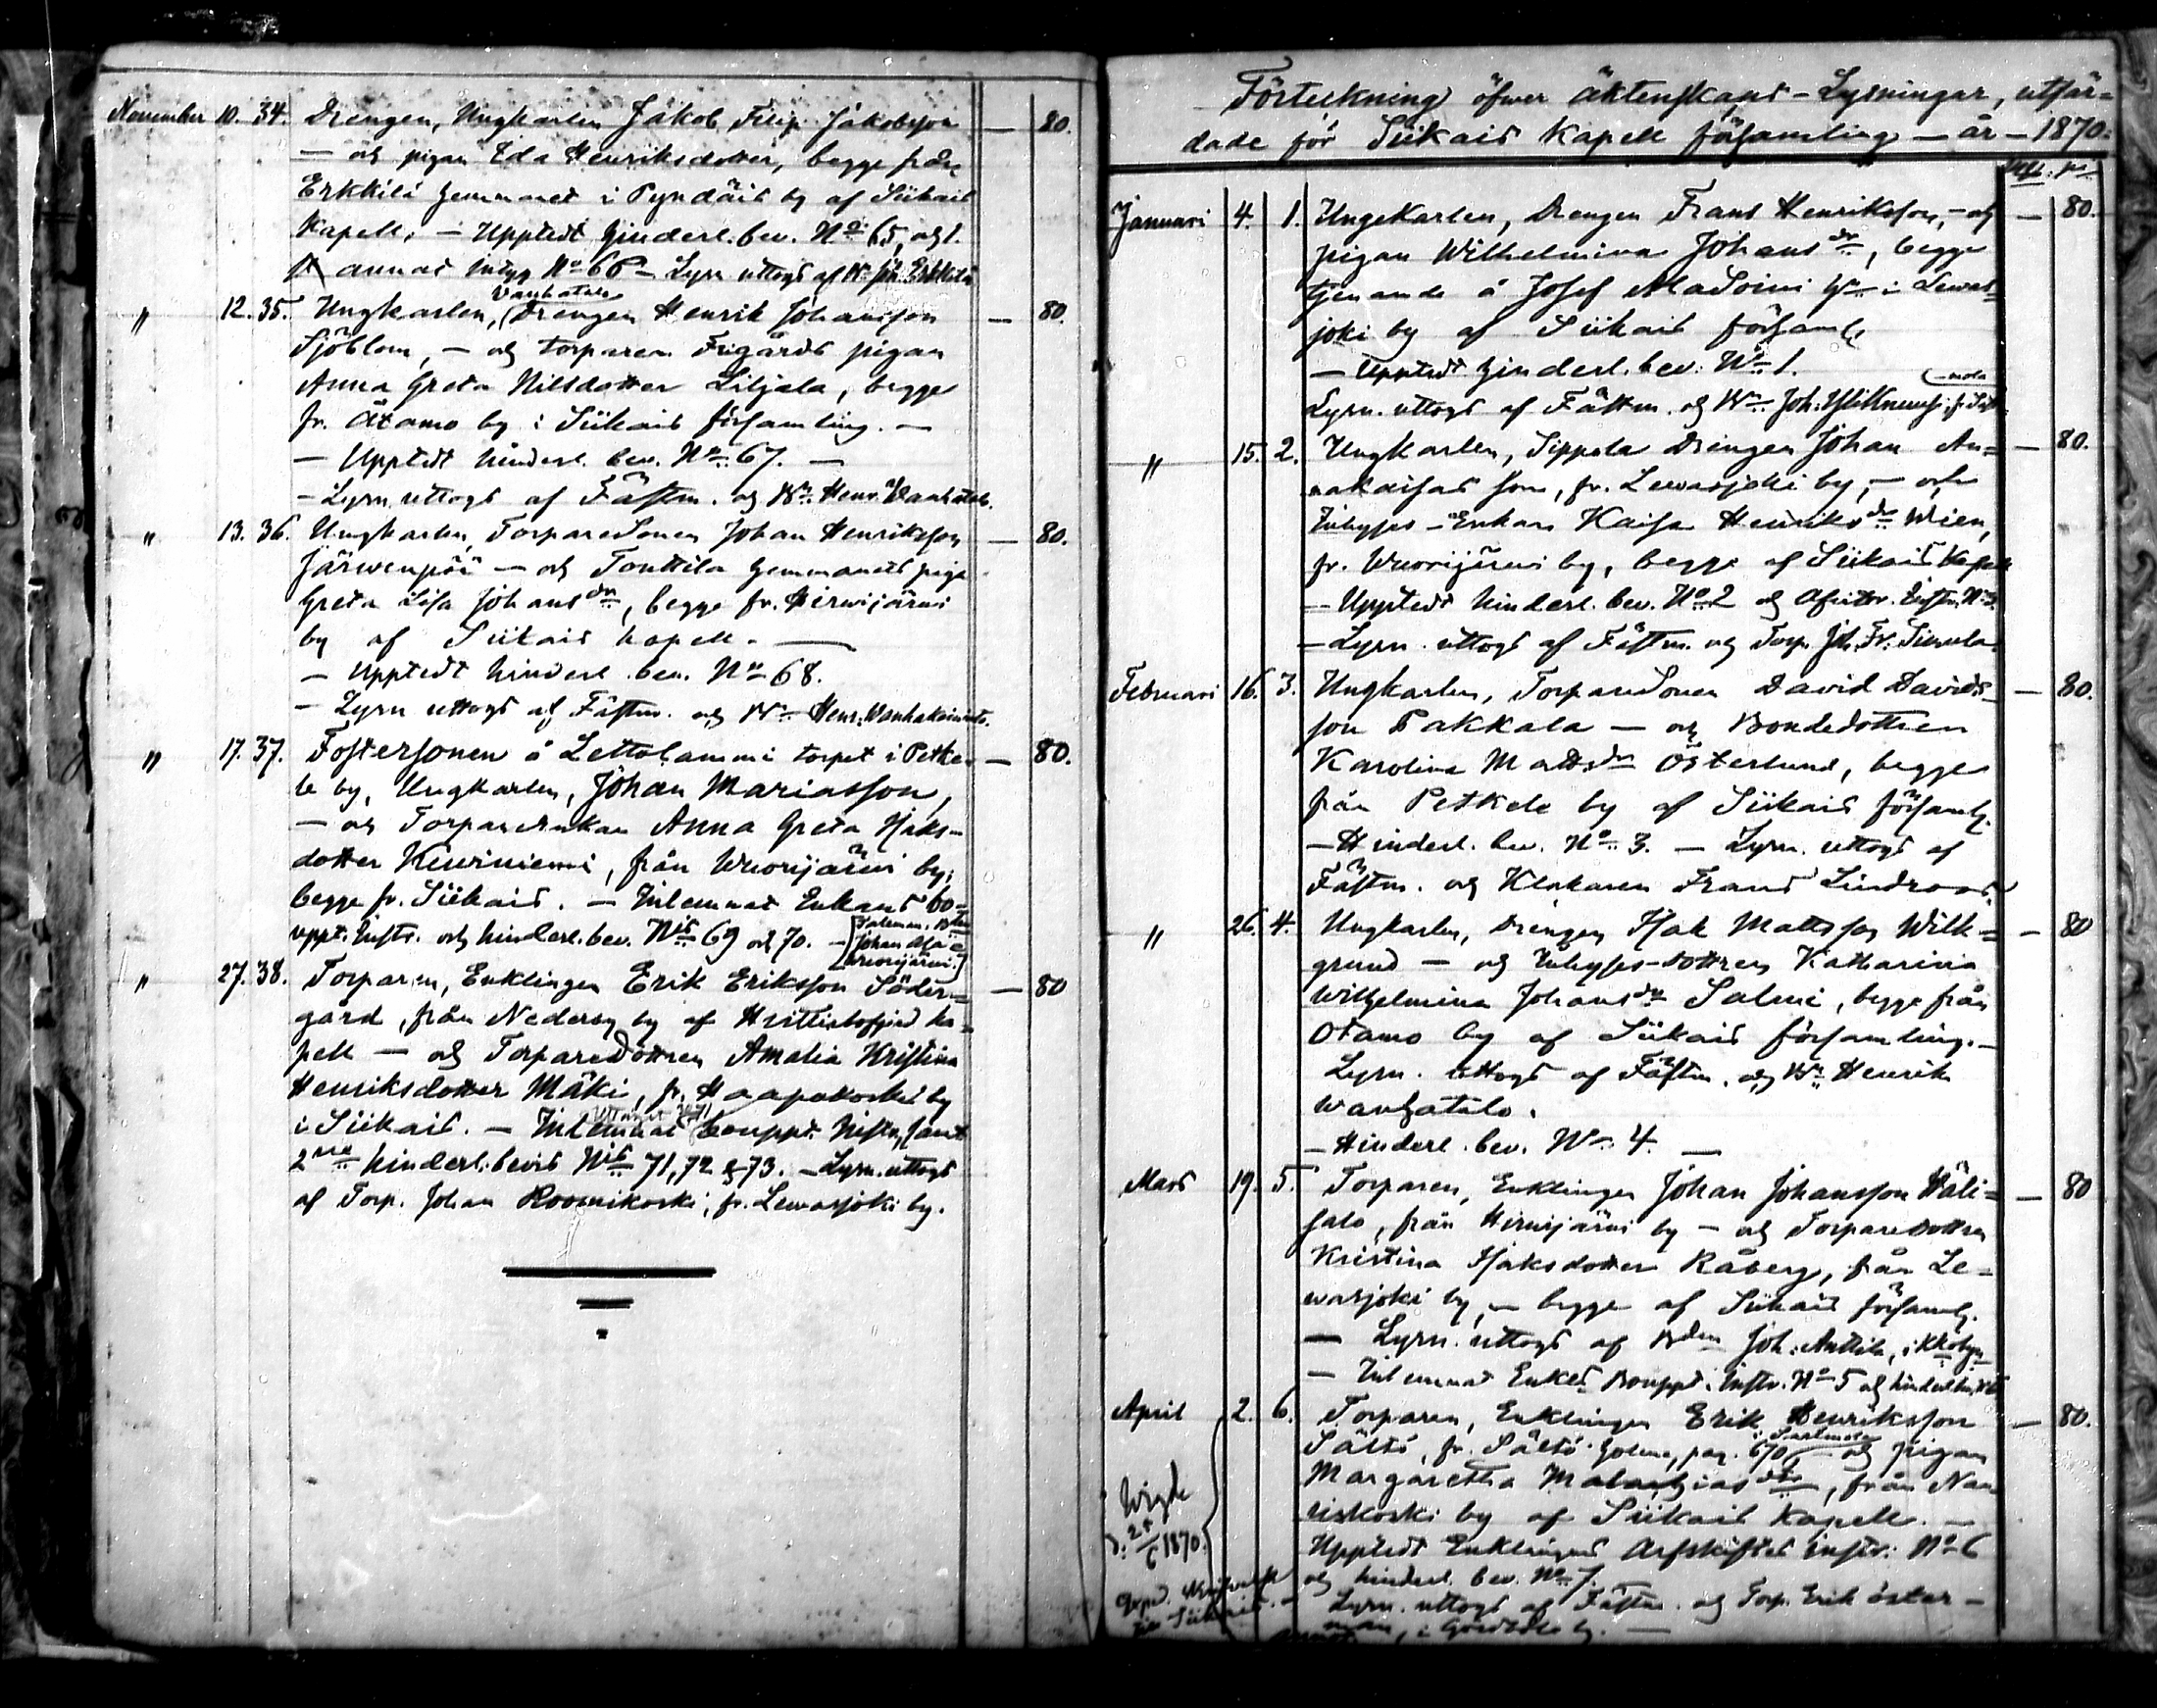 November 10. 34. Drengen, Ungkarlen Jakob Filip Jakobsson — 80.
— och pigan Eda Henriksdotter, begge från
Erkkilä hemmanet i Pyndäis by af Siikais
Kapell. — Upptedt hinderl. bev. No 65, och 1.
annat intyg No 66 — Lysn uttogs af Bn Joh. Erkkilä
Vanhatalo
" 12. 35. Ungkarlen, Drengen Henrik Johansson — 80.
Sjöblom, — och torparen Frigårds pigan
Anna Greta Nilsdotter Liljala, begge
fr. Otamo by i Siikais församling. —
— Upptedt hinderl. bev. No 67. —
— Lysn uttogs af Fästm. och Bn Henr. Vanhatalo.
" 13. 36. Ungkarlen, Torparesonen Johan Henriksson — 80.
Järwenpää — och Tonttila hemmanets piga
Greta Lisa Johansdr, begge fr. Hirwijärwi
by af Siikais kapell. —
— Upptedt hinderl. bev. No 68.
— Lysn uttogs af Fästm. och Bn Henr.
" 17. 37. Fostersonen å Lettolammi torpet i Petke- — 80.
le by, Ungkarlen, Johan Mariasson,
— och Torpareenkan Anna Greta Isaks-
dotter Kiwiniemi, från Wuorijärwi by,
begge fr. Siikais. — Inlemnat Enkans bo-
uppt. Instr. och hinderl. bev. Nis 69 och 70. —
Johan Ala-
Wuorijärwi.
" 27. 38. Torparen, Enklingen Erik Eriksson Söder- — 80
gård, från Nederby by af Hvittisbofjerd ka-
pell — och Torparedottren Amalia Kristina
Henriksdotter Mäki, fr. Haapakoski by
i Siikais. — Inlemnat bouppt. Instr, samt
2ne hinderl. bevis Nis 71, 72 & 73. — Lysn. uttogs
af Torp. Johan Roomikoski, fr. Lewasjoki by.
Förteckning öfwer äktenskaps-Lysningar, utfär-
dade för Siikais Kapell församling — år — 1870.
Januari 4. 1. Ungekarlen, Drengen Frans Henriksson, — och — 80.
pigan Wilhelmina Johansdr, begge
tjenande å Josef AlaSoini hn i Lewas-
joki by af Siikais församl.
— Upptedt hinderl. bev. No 1.
Lysn. uttogs af Fästm. och Bn Joh.
" 15. 2. Ungkarlen, Sippola Drengen Johan An- — 80.
nakaisas son, fr. Lewasjoki by, — och
Inhyses-Enkan Kaisa Henriksdr Wien,
fr. Wuorijärwi by, begge af Siikais Kapell
— Upptedt hinderl. bev. No 2 och Afwittr. Instr. No
— Lysn. uttogs af Fästm. och Torp. Joh. Fr. Simula
Februari 16. 3. Ungkarlen, Torparesonen David Davids- — 80.
son Pakkala — och Bondedottren
Karolina Mattsdr Österlund, begge
från Petkele by af Siikais församl.
— Hinderl. bev. No 3. — Lysn. uttogs af
Fästm. och Klokaren Frans Lindroos.
" 26. 4. Ungkarlen, Drengen Isak Mattsson Wilk- — 80
grund — och Inhyses-dottren Katharina
Wilhelmina Johansdr Salmi, begge från
Otamo by af Siikais församling. —
Lysn. uttogs af Fästm. och Bn Henrik
Wanhatalo.
— Hinderl. bev. No 4. —
Mars 19. 5. Torparen, Enklingen Johan Johansson Wäli- — 80
salo, från Hirwijärwi by — och Torparedottren
Kristina Isaksdotter Råberg, från Le-
wasjoki by, — begge af Siikais församl.
— Lysn. uttogs af Bden Joh. Anttila, i Kkobyn
— Inlemnat Enkl. Bouppt. Instr. No 5 och hinderl.
April 2. 6. Torparen, Enklingen Erik Henriksson — 80.
Sältö, fr. Sältö holme, pag. 670 — och pigan
Margaretha Malachiasdr, från Na-
riskoski by af Siikais Kapell. —
Upptedt Enklingens Arfskiftes instr. No 6
och hinderl. bev. No 7. —
Lysn. uttogs af Fästm. och Torp. Erik Öster-
man, i
Wigde
d. 24/6 1870.
Siikais.